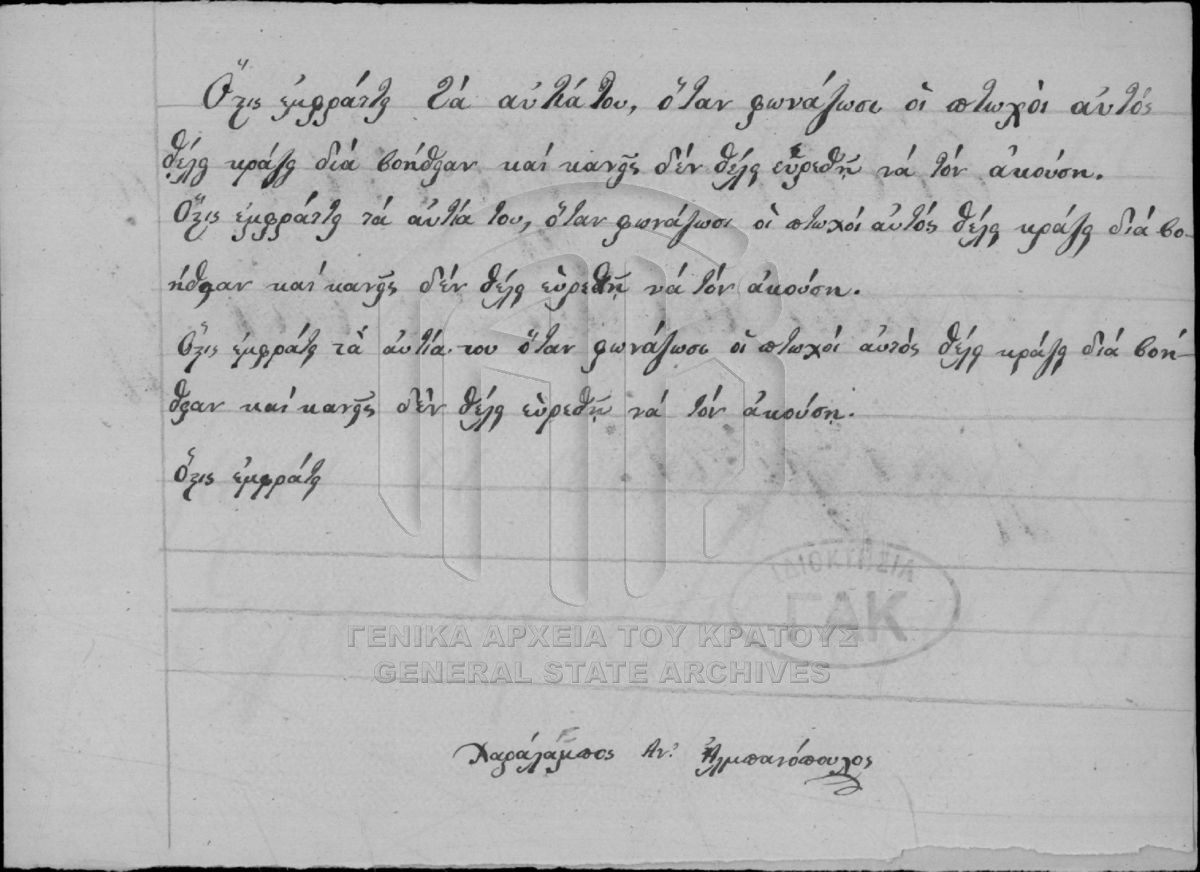 Ὅστις ἐμφράττει τά αὐτιά του, ὅταν φωνάζωσι οἱ πτωχὸι αὐτός
θέλει κράζει διά βοήθειαν καί κανείς δέν θέλει εὑρεθῆ νά τόν ἀκούσῃ.
Ὅστις ἐμφράττει τά αὐτία του, ὅταν φωνάζωσι οἱ πτωχοί αὐτός θέλει κράζει διά βο-
ήθειαν καί κανείς δέν θέλει εὑρεθῆ νά τόν ἀκούσῃ.
Ὅστις ἐμφράττει τὰ αὐτία του ὅταν φωνάζωσι οἱ πτωχοί αὐτός θέλει κράζει διά βοή-
θειαν καί κανείς δέν θέλει εὑρεθῆ νά τόν ἀκούσῃ.
Ὅστις ἐμφράττει
ΙΔΙΟΚΤΗΣΙΑ
ΓΑΚ
ΓΕΝΙΚΑ ΑΡΧΕΙΑ ΤΟΥ ΚΡΑΤΟΥΣ
GENERAL STATE ARCHIVES
Χαράλαμπος Αν.